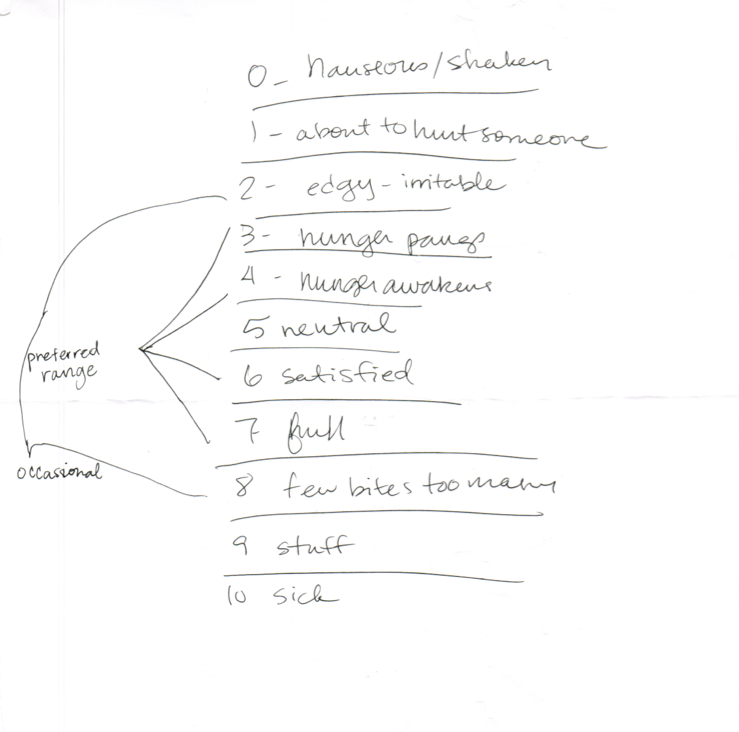 0- nauseous/shaken
1- about to hurt someone
2- edgy-irritable
3- hunger pangs
4- hunger awakens
5 neutral
preferred
range
6 satisfied
7 full
occasional
8 few bites too many
9 stuff
10 sick